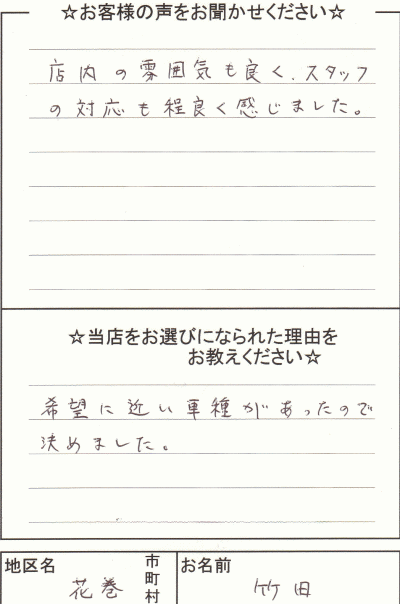 ☆お客様の声をお聞かせください☆
店内の雰囲気も良く、スタッフ
の対応も程良く感じました。
☆当店をお選びになられた理由を
お教えください☆
希望に近い車種があったので
決めました。
地区名
花巻
市
町
村
お名前
竹田